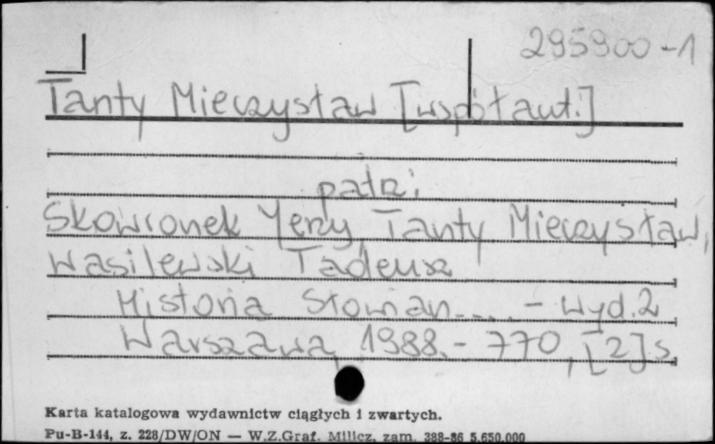 295900-1
Tanty Mieczysław [współaut.]
patrz:
Skowronek Jerzy, Tanty Mieczysław,
Wasilewski Tadeusz
Historia Słowian.... - wyd. 2
Warszawa, 1988. - 770, [2] s
Karta katalogowa wydawnictw ciągłych i zwartych.
Pu-B-144, z. 228/DW/ON — W.Z.Graf. Milicz, zam. 388-86 5.650.000